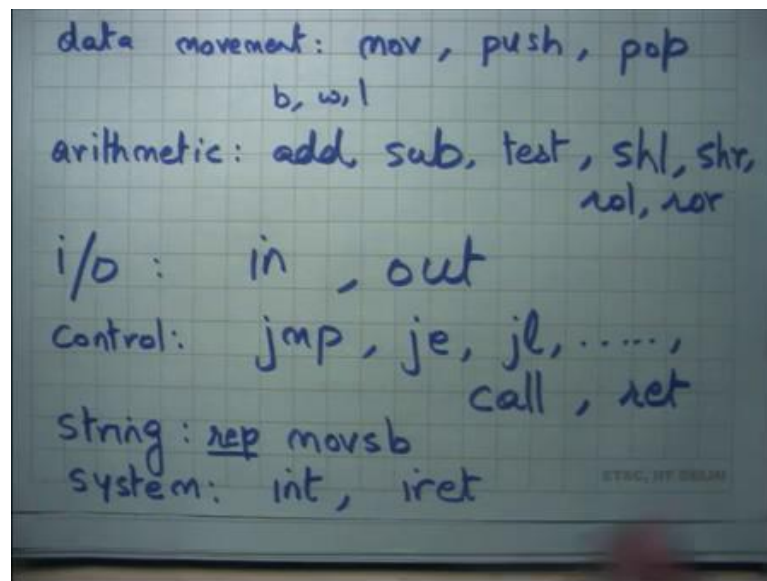 data movement: mov, push, pop
b, w, l
arithmetic: add, sub, test, shl, shr,
rol, ror
i/o : in , out
control: jmp, je, jl, .....,
call , ret
string : rep movsb
system: int, iret
ETSC, IIT DELHI